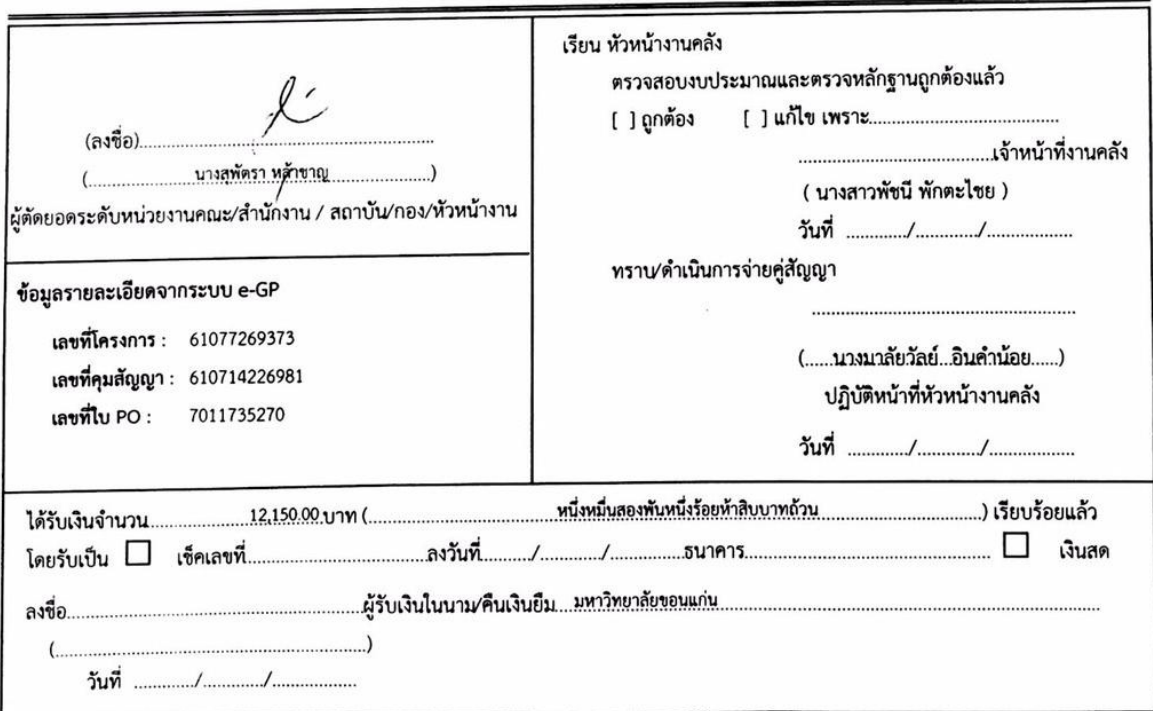 (ลงชื่อ)..........................................................
(......................นางสุพัตรา หล้าชาญ.....................)
ผู้ตัดยอดระดับหน่วยงานคณะ/สำนักงาน / สถาบัน/กอง/หัวหน้างาน
ข้อมูลรายละเอียดจากระบบ e-GP
เลขที่โครงการ : 61077269373
เลขที่คุมสัญญา : 610714226981
เลขที่ใบ PO : 7011735270
เรียน หัวหน้างานคลัง
ตรวจสอบงบประมาณและตรวจหลักฐานถูกต้องแล้ว
[ ] ถูกต้อง [ ] แก้ไข เพราะ......................................
.......................................เจ้าหน้าที่งานคลัง
( นางสาวพัชนี พักตะไชย )
วันที่ ............./............./.................
ทราบ/ดำเนินการจ่ายคู่สัญญา
.....................................................
(......นางมาลัยวัลย์...อินคำน้อย......)
ปฏิบัติหน้าที่หัวหน้างานคลัง
วันที่ ............./............./.................
ได้รับเงินจำนวน....................12,150.00.บาท (......................................หนึ่งหมื่นสองพันหนึ่งร้อยห้าสิบบาทถ้วน.................................) เรียบร้อยแล้ว
โดยรับเป็น ☐ เช็คเลขที่....................................ลงวันที่.........../............./...............ธนาคาร................................................. ☐ เงินสด
ลงชื่อ............................................................ผู้รับเงินในนาม/คืนเงินยืม....มหาวิทยาลัยขอนแก่น............................................................................
(..............................................................)
วันที่ ............./............./.................